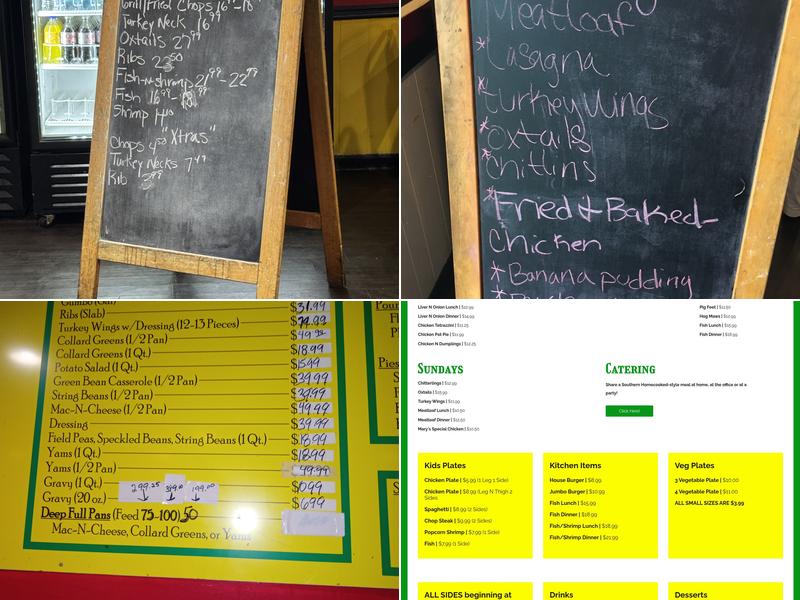 Grill/Fried Chops 16
Turkey Neck 16.99
Oxtails 27
Ribs 23.50
Fish-n-shrimp 21.99-22.99
Fish 16.99-
Shrimp
"Xtras"
Chops 4.50
Turkey Necks 7.49
Rib
Meatloaf
* Lasagna
* Turkey Wings
* Oxtails
* Chitlins
* Fried & Baked-
Chicken
* Banana pudding
Gumbo (Gal)
Ribs (Slab)
$31.99
Turkey Wings w/Dressing (12-13 Pieces)
Collard Greens (1/2 Pan)
Collard Greens (1 Qt.)
$18.99
Potato Salad (1 Qt.)
Green Bean Casserole (1/2 Pan)
$39.99
String Beans (1/2 Pan)
$39.99
Mac-N-Cheese (1/2 Pan)
$49.99
Dressing
$39.99
Field Peas, Speckled Beans, String Beans (1 Qt.)
$18.99
Yams (1 Qt.)
$18.99
Yams (1/2 Pan)
49.99
Gravy (1 Qt.)
Gravy (20 oz.)
$6.99
Deep Full Pans (Feed 75-100) 50
Mac-N-Cheese, Collard Greens, or Yams
Liver N Onion Lunch | $12.99
Liver N Onion Dinner | $14.99
Chicken Tetrazzini | $11.25
Chicken Pot Pie | $11.99
Chicken N Dumplings | $12.25
Pig Feet | $11.50
Hog Maws | $10.99
Fish Lunch | $15.99
Fish Dinner | $18.99
Sundays
Chitterlings | $12.99
Oxtails | $18.99
Turkey Wings | $11.99
Meatloaf Lunch | $10.50
Meatloaf Dinner | $12.50
Mary's Special Chicken | $10.50
Catering
Share a Southern Homecooked-style meal at home, at the office or at a
party!
Click Here!
Kids Plates
Chicken Plate | $5.99 (1 Leg 1 Side)
Chicken Plate | $8.99 (Leg N Thigh 2
Sides)
Spaghetti | $8.99 (2 Sides)
Chop Steak | $9.99 (2 Sides)
Popcorn Shrimp | $7.99 (1 Side)
Fish | $7.99 (1 Side)
Kitchen Items
House Burger | $8.99
Jumbo Burger | $10.99
Fish Lunch | $15.99
Fish Dinner | $18.99
Fish/Shrimp Lunch | $18.99
Fish/Shrimp Dinner | $21.99
Veg Plates
3 Vegetable Plate | $10.00
4 Vegetable Plate | $11.00
ALL SMALL SIZES ARE $3.99
ALL SIDES beginning at
Drinks
Desserts